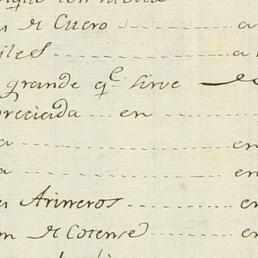 de Cuero ---- a
iles ---- a
grande q.e sirve
preciada --- en ---
a ---- en
a ---- en
Arrieros ---- en
de Cotense ---- en